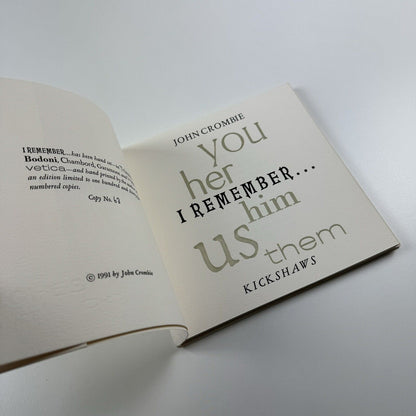 I REMEMBER...has been hand set
Bodoni, Chambord, Garamond, and
vetica—and hand printed by the
an edition limited to one hundred and
numbered copies.
Copy No.
© 1991 by John Crombie
JOHN CROMBIE
you
her
I REMEMBER...
him
us
them
KICKSHAWS